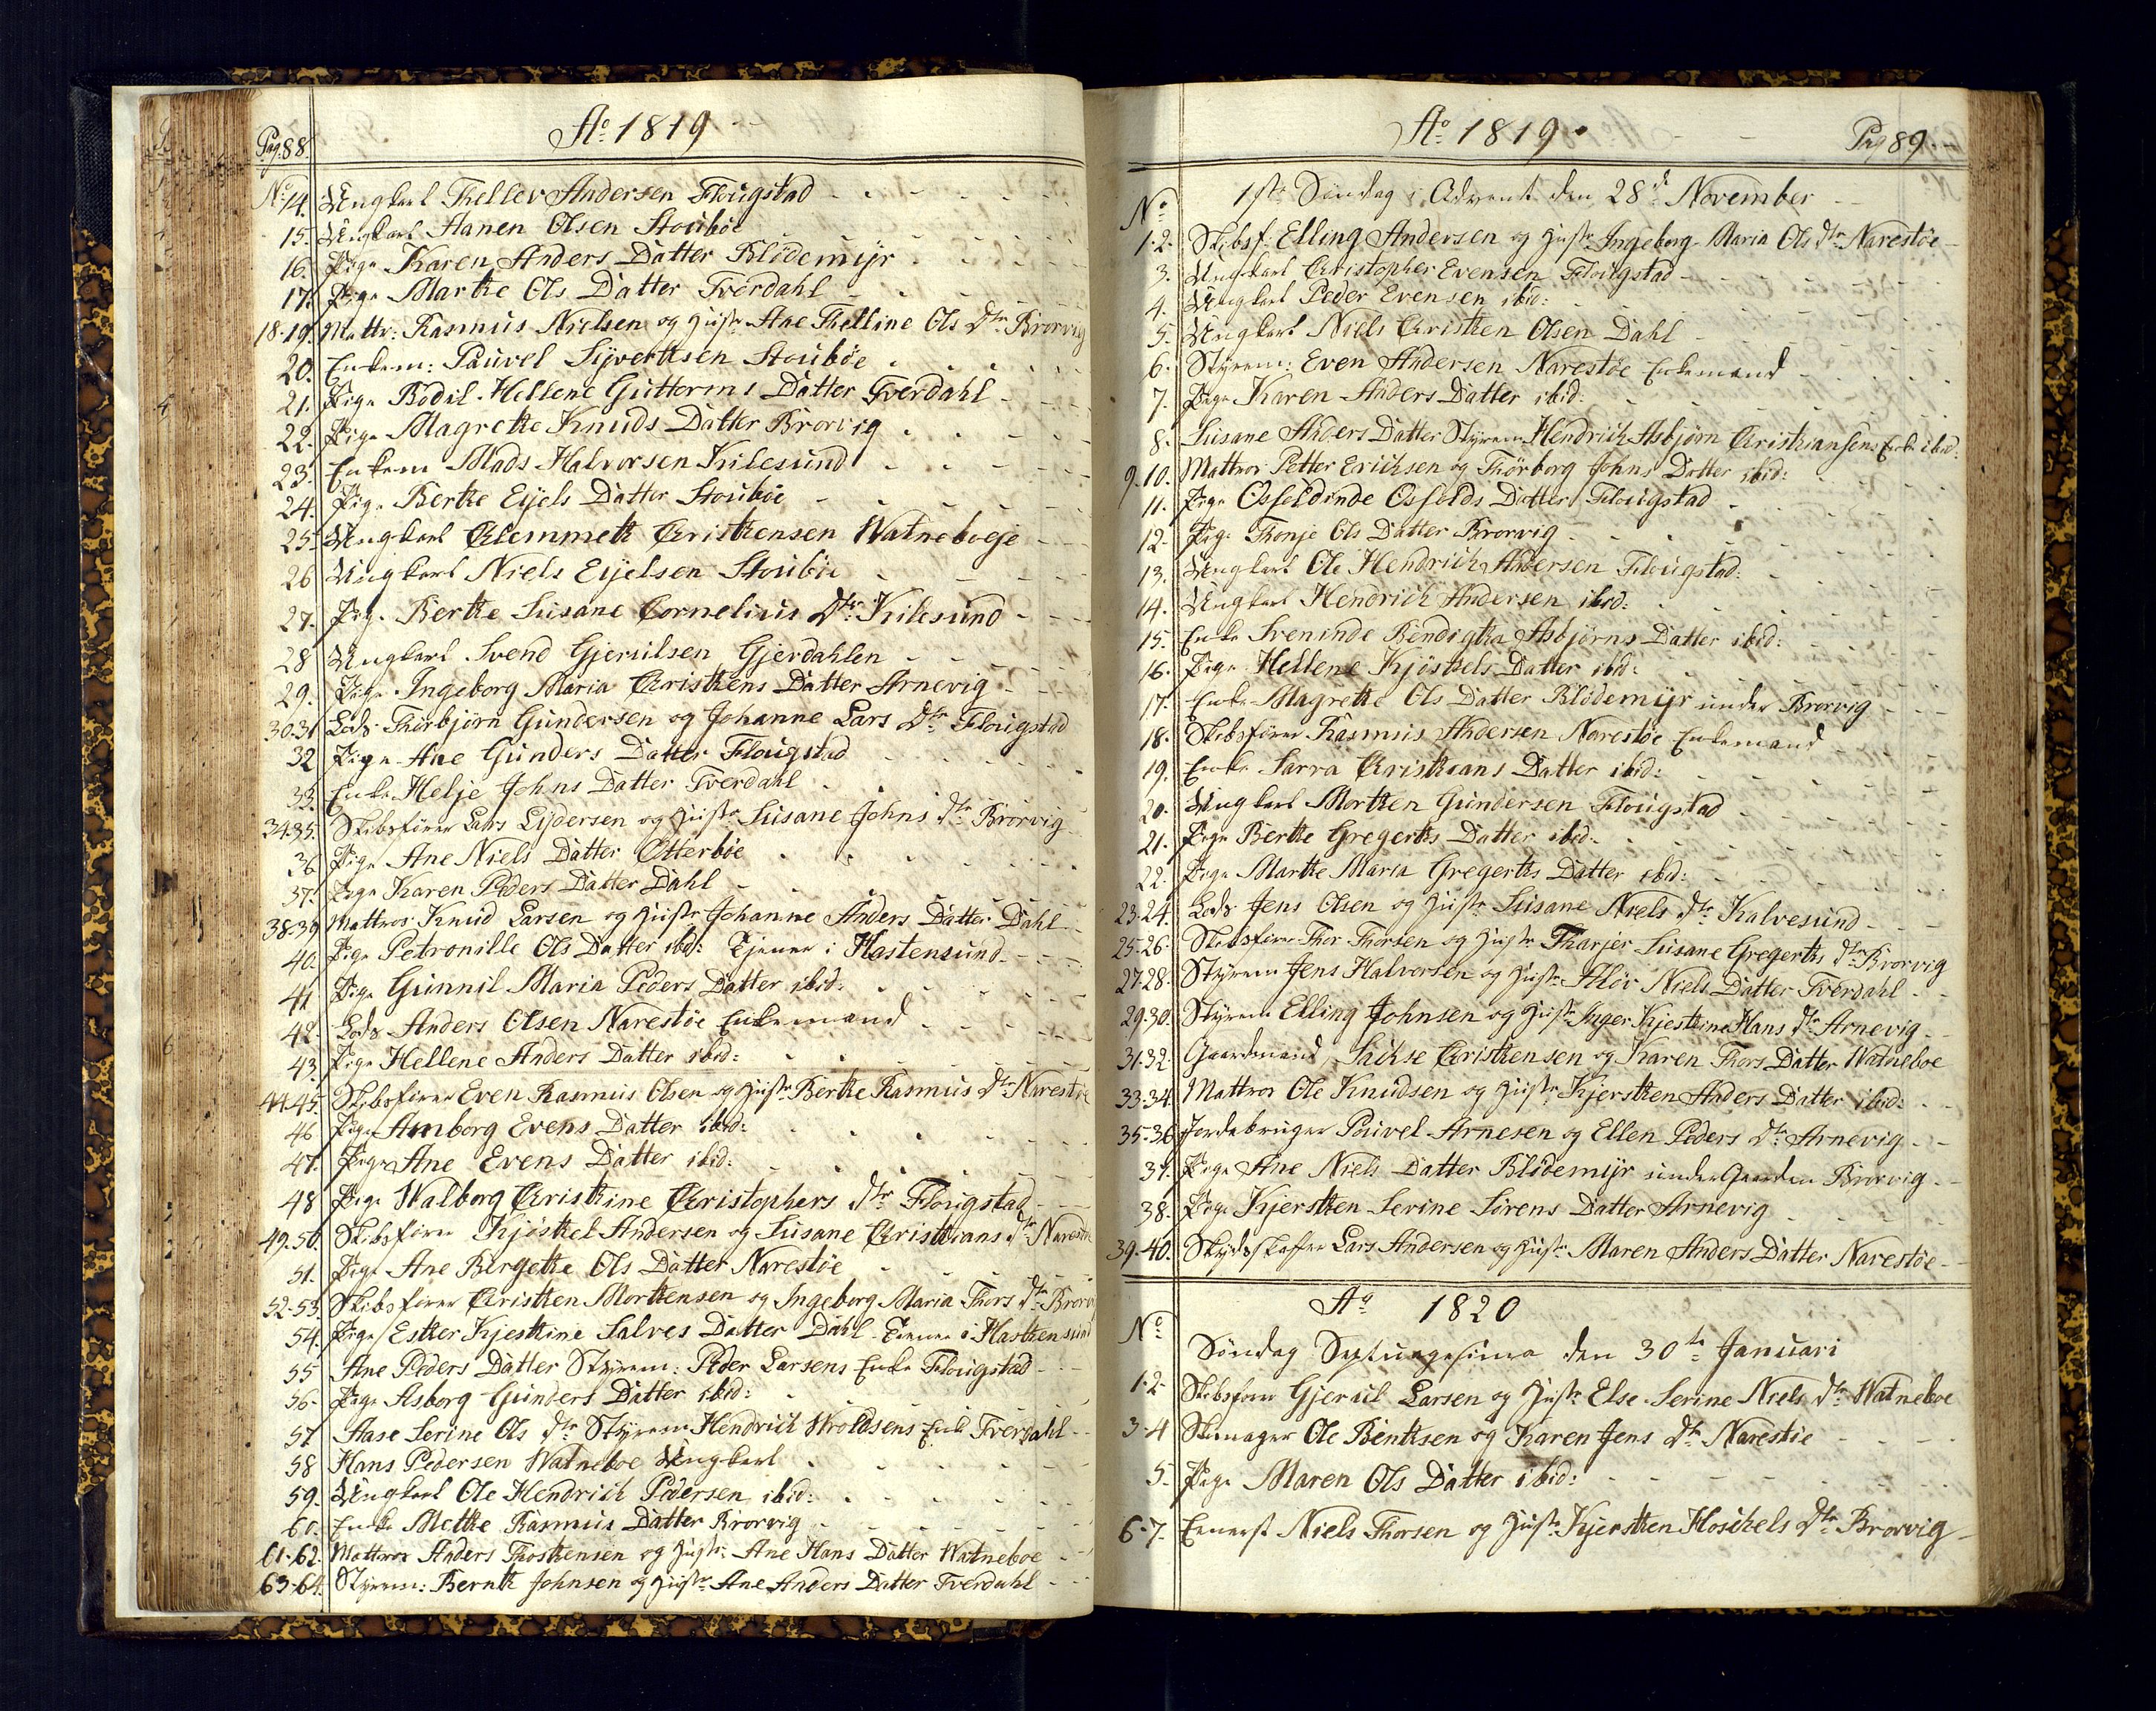 Pag: 88.
Ao 1819
No 14. Ungkarl Thellev Andersen Flougstad
15. Ungkarl Aanen Olsen Stoubøe
16. Pige Karen Anders Datter Blødemÿr
17. Pige Marthe Ols Datter Tverdahl
18-19. Mattr: Rasmus Nielsen og Hustr. Ane Thelline Ols Dtr Brorvig
20. Enkem: Pouvel Sÿvertsen Stoubøe
21. Pige Bodil Hellene Guttorms Datter Tverdahl
22. Pige Magrethe Knuds Datter Brorvig
23. Enkem Mads Halvorsen Kilesund
24. Pige Berthe Eÿels Datter Stoubøe
25. Ungkarl Clemmeth Cristhensen Watneboeje
26 Ungkarl Niels Eÿelsen Stoubøe
27. Pige Berthe Susane Cornelius Dtr Kilesund
28 Ungkarl Svend Gjerulsen Gjerdahlen
29. Pige Ingeborg Maria Cristhens Datter Arnevig
30-31 Lods Thorbjørn Gundersen og Johanne Lars Dtr Flougstad
32 Pige Ane Gunders Datter Flougstad
33. Enke Helje Johns Datter Tverdahl
34-35. Skibsfører Lars Lÿdersen og Hustr Susane Johns Dtr Brorvig
36 Pige Ane Niels Datter Otterbøe
37. Pige Karen Peders Datter Dahl
38-39 Mattros Knud Larsen og Hustr Johanne Anders Datter Dahl
40. Pige Petronille Ols Datter ibd: Tjener i Hastensund
41 Pige Gunnil Maria Peders Datter ibid:
42. Lods Anders Olsen Narestøe Enkemand
43. Pige Hellene Anders Datter ibid:
44-45. Skibsfører Even Rasmus Olsen og Hustr Berthe Rasmus Dtr Narestøe
46 Pige Amborg Evens Datter ibid:
47. Pige Ane Evens Datter ibid:
48 Pige Walborg Cristhine Cristophers Dtr Flougstad
49-50. Skibsfører Kjøsthel Andersen og Susane Cristhians Dtr Narestøe
51. Pige Ane Birgethe Ols Datter Narestøe
52-53. Skibsfører Cristhen Morthensen og Ingeborg Maria Thors Dtr Brorvig
54. Pige Esther Kjesthine Salves Datter Dahl Tiener i Hasthensund
55 Ane Peders Datter Stÿrem: Peder Larsens Enke Flougstad
56. Pige Asborg Gunders Datter ibid:
57 Aase Serine Ols Dtr Stÿrem Hendrich Wroldsens Enke Tverdahl
58 Hans Pedersen Watneboe Ungkarl
59. Ungkarl Ole Hendrich Pedersen ibid:
60. Enke Methe Rasmus Datter Brorvig
61-62. Mattros Anders Thosthensen og Hustr. Ane Hans Datter Watneboe
63-64. Stÿrem: Bernth Johnsen og Hustr Ane Anders Datter Tverdahl
Ao 1819
Pag 89
No 1ste Søndag i Advent den 28de November
1-2. Skibsf: Elling Andersen og Hustr. Ingeborg Maria Ols Dtr Narestøe
3. Ungkarl Cristopher Evensen Flougstad
4. Ungkarl Peder Evensen ibid:
5. Ungkarl Niels Cristhen Olsen Dahl
6. Stÿrem: Even Andersen Narestøe Enkemand
7. Pige Karen Anders Datter ibid:
8. Susane Anders Datter Stÿrem Hendrich Asbjørn Cristhiansens Enke ibid.
9.10. Mattros Petter Erichsen og Thorborg Johns Datter ibid:
11. Pige Osfoldinde Osfolds Datter Flougstad
12. Pige Thonje Ols Datter Brorvig
13. Ungkarl Ole Hendrich Andersen Flougstad:
14. Ungkarl Hendrich Andersen ibid:
15. Enke Sveninde Bendigtha Asbjørns Datter ibid:
16. Pige Hellene Kjøsthels Datter ibd:
17. Enke Magrethe Ols Datter Blødemÿr under Brorvig
18. Skibsfører Rasmus Andersen Narestøe Enkemand
19. Enke Sarra Cristhians Datter ibid:
20. Ungkarl Morthen Gundersen Flougstad
21. Pige Berthe Gregerths Datter ibid:
22. Pige Marthe Maria Gregerths Datter ibid:
23-24. Lods Jens Olsen og Hustr Susane Niels Dtr Kalvesund
25-26. Skibsfører Thor Thorsen og Hustr Tharjer Susane Gregerths Dtr Brorvig
27-28. Stÿrem Jens Halvorsen og Hustr. Asløv Niels Datter Tverdahl
29-30. Stÿrem Elling Johnsen og Hustr Inger Kjesthine Hans Dtr Arnevig
31-32. Gaardmand Sichse Cristhensen og Karen Thors Datter Watneboe
33-34. Mattros Ole Knudsen og Hustr. Kjersthen Anders Datter ibid:
35-36 Jordebruger Pouvel Arnesen og Ellen Peders Dtr Arnevig
37. Pige Ane Niels Datter Blødemÿr under Gaarden Brorvig
38. Pige Kjersthen Serine Sørens Datter Arnevig
39-40. Skÿdsskaffer Lars Andersen og Hustr Maren Anders Datter Narestøe
Ao 1820
No Søndag Septuagesima den 30te Januari
1-2. Skibsfører Gjerul Larsen og Hustr Else Serine Niels Dtr Watneboe
3-4 Skomager Ole Benthsen og Karen Jens Dtr Narestøe
5. Pige Maren Ols Datter ibid:
6-7. Niels Thorsen og Hustr Kjersthen Hoschels Dtr Brorvig